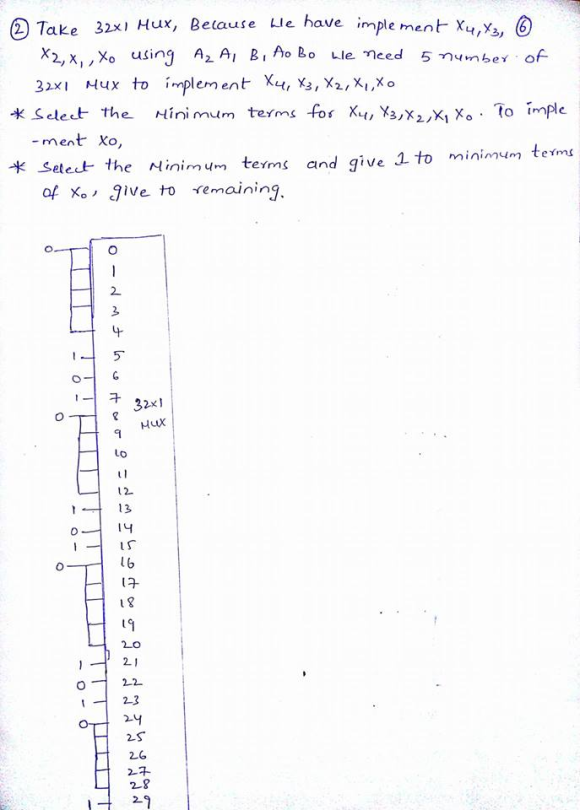 ② Take 32x1 Mux, Because we have implement X4, X3, ⑥
X2, X1, X0 using A2 A1 B1 A0 B0 we need 5 number of
32x1 Mux to implement X4, X3, X2, X1, X0
* Select the Minimum terms for X4, X3, X2, X1 X0. To imple
-ment X0,
* Select the Minimum terms and give 1 to minimum terms
of X0, give to remaining.
0 0
1
2
3
4
1 5
0 6
1 7
32x1
0 8
Mux
9
10
11
12
1 13
0 14
1 15
0 16
17
18
19
20
1 21
0 22
1 23
0 24
25
26
27
28
1 29